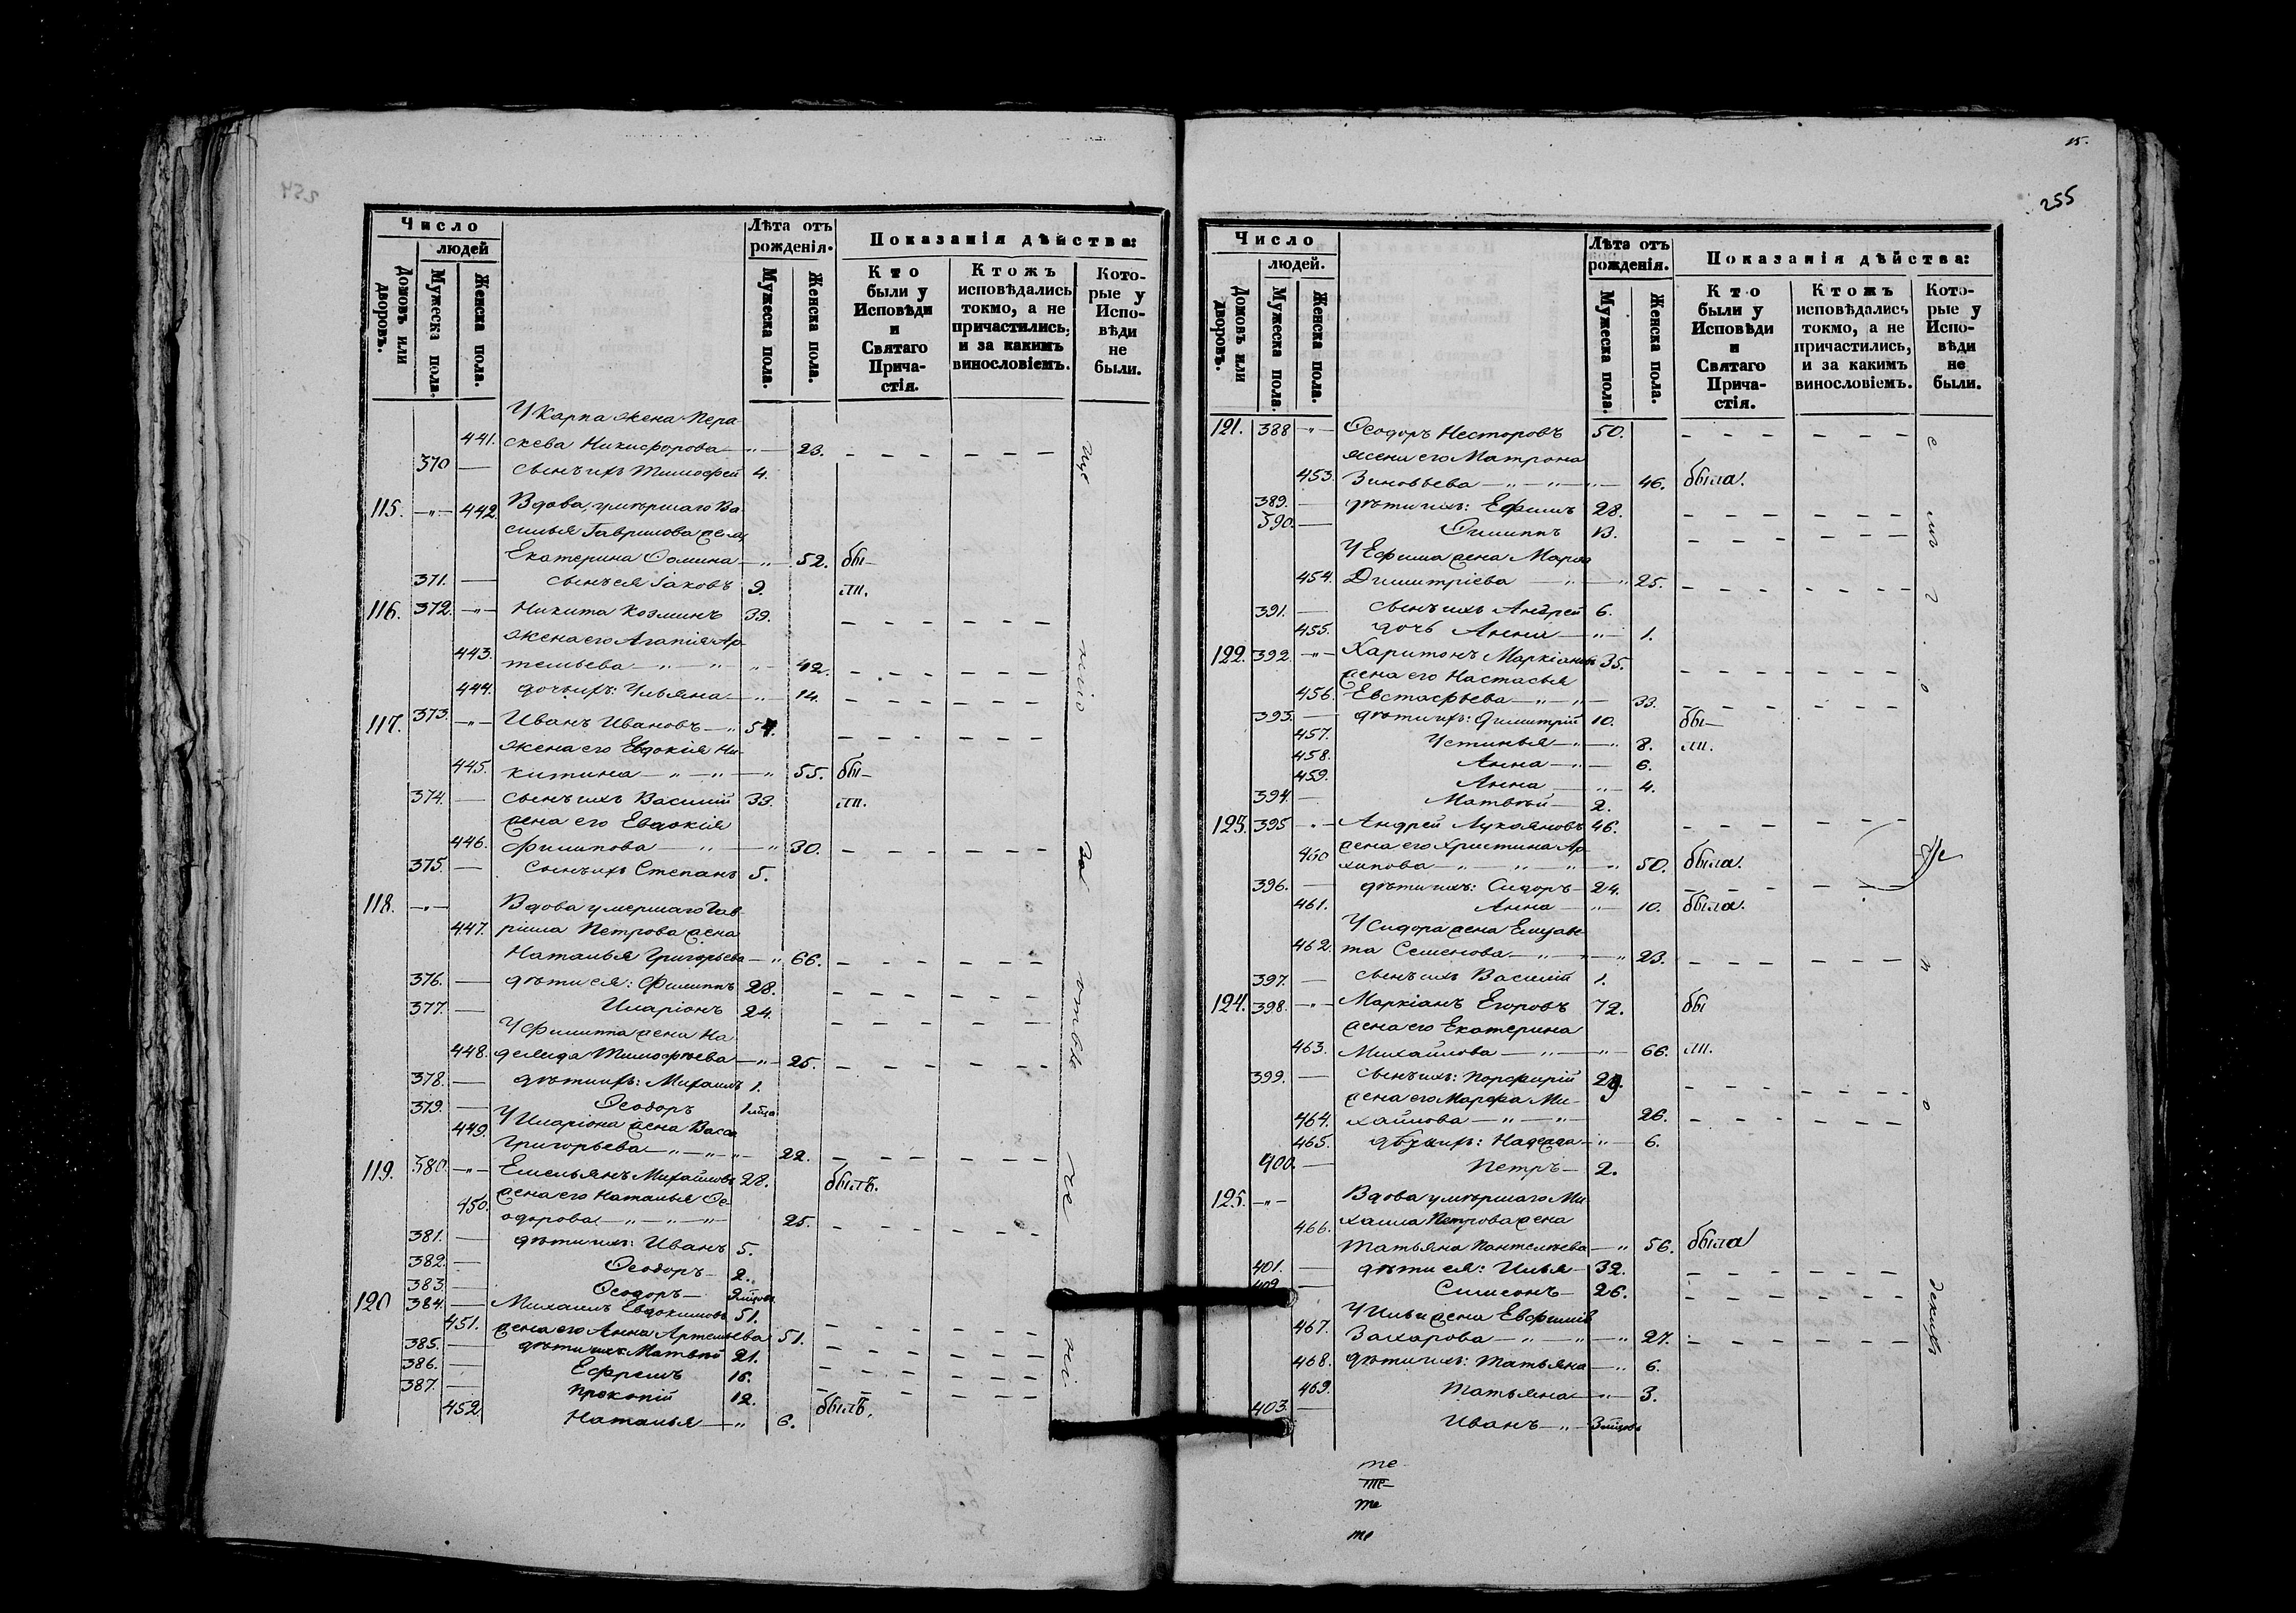 254
Число
людей
Домовъ или дворовъ.
Мужеска пола.
Женска пола.
Лѣта отъ рожденія.
Мужеска пола.
Женска пола.
Показанія дѣйства:
Кто были у Исповѣди и Святаго Причастія.
Ктожъ исповѣдались токмо, а не причастились, и за какимъ винословіемъ.
Которые у Исповѣди не были.
У Карпа жена Пера
441. скева Никифорова — " — 23. — — — — — —
370 — сынъ ихъ Тимофей 4.
115. — " — 442. Вдова, умершаго Ва
силья Гаврилова жена
Екатерина Фомина — " — 52. бы-
371. — сынъ ея Іаковъ 9. ли.
116. 372. — " — Никита Козминъ 39. — — — — — —
жена его Агапія Ар
443. темьева — " — " — " — 42. — — — — — —
444. дочь ихъ: Ульяна — " — 14. — — — — — —
117. 373. — " — Иванъ Ивановъ — " 54. — — — — — —
жена его Евдокія Ни-
445. китина — " — " — " 55. бы-
374. — сынъ ихъ Василій 33. ли.
жена его Евдокія
446. Филипова — " — " 30. — — — — — —
375. — Сынъ ихъ Степанъ 5.
118. — " — Вдова умершаго Гав
447. ріила Петрова жена
Наталья Григорьева — " 66. — — — — — —
376. — дѣти ея: Филиппъ 28. — — — — — —
377. — Иларіонъ 24. — — — — — —
У Филиппа жена На
448. дежда Тимофѣева — " — 25. — — — — — —
378. — дѣти ихъ: Михаилъ 1.
379. — Ѳеодоръ 1 мѣца
У Иларіона жена Васса
449. Григорьева — " — " — " — 22. — — — — — —
119. 380. — " — Емельянъ Михайловъ 28. былъ.
жена его Наталья Ѳе
450. одорова — " — " — " — 25. — — — — — —
381. — дѣти ихъ: Иванъ 5.
382. — Ѳеодоръ — 2.
383. — Ѳеодоръ — 2 мѣцовъ
120 384. — Михаилъ Евдокимовъ 51. — — — — — —
451. жена его Анна Артемьева 51. — — — — — —
385. — дѣти ихъ: Матвѣй 21. — — — — — —
386. — Ефремъ 16. — — — — — —
387. — Прокопій 12. былъ.
452. Наталья — " 6.
15.
255
Число
людей.
Домовъ или дворовъ.
Мужеска пола.
Женска пола.
Лѣта отъ рожденія.
Мужеска пола.
Женска пола.
Показанія дѣйства:
Кто были у Исповѣди и Святаго Причастія.
Ктожъ исповѣдались токмо, а не причастились, и за какимъ винословіемъ.
Которые у Исповѣди не были.
121. 388 — " — Ѳеодоръ Несторовъ 50. — — — — — —
жена его Матрона
453. Зиновьева — " — " — " — 46. была.
389. — дѣти ихъ: Ефимъ 28. — — — — — —
390. — Филиппъ 13. — — — — — —
У Ефима жена Марѳа
454. Димитріева — " — " 25. — — — — — —
391. — сынъ ихъ Андрей 6.
455. дочь Анна — " — 1.
122. 392. — " — Харитонъ Маркіановъ 35. — — — — — —
жена его Настасья
456. Евстафьева — " — " — 33. — — — — — —
393. — дѣти ихъ: Димитрій 10. бы-
457. Устинья — " — " 8. ли.
458. Анна — " — 6.
459. Анна — " — 4.
394. — Матвѣй — 2.
123. 395 — " — Андрей Лукояновъ 46. — — — — — —
жена его Христина Ар
460 хипова — " — " — " — " 50. была.
396. — дѣти ихъ: Сидоръ — 24. — — — — — —
461. Анна — " — 10. была.
У Сидора жена Елизаве
462. та Семенова — " — " — " 23. — — — — — —
397. — сынъ ихъ Василій 1.
124. 398. — " — Маркіанъ Егоровъ 72. бы
жена его Екатерина
463. Михайлова — " — " — 66. ли.
399. — сынъ ихъ: Порфирій 29. — — — — — —
жена его Марфа Ми-
464. хайлова — " — " — 26. — — — — — —
465. дѣти ихъ: Надежда — " — 6.
400. — Петръ — 2.
125. — " — Вдова умершаго Ми
466. хаила Петрова жена
Татьяна Пантелѣева — " 56. была
401. — дѣти ея: Илья — 32. — — — — — —
402. — Симеонъ — 26. — — — — — —
У Ильи жена Евфимія
467. Захарова — " — " — " 27. — — — — — —
468. дѣти ихъ: Татьяна — " 6.
469. Татьяна — " — 3.
403. — Иванъ — " — 3 мѣцовъ
те
те
те
те